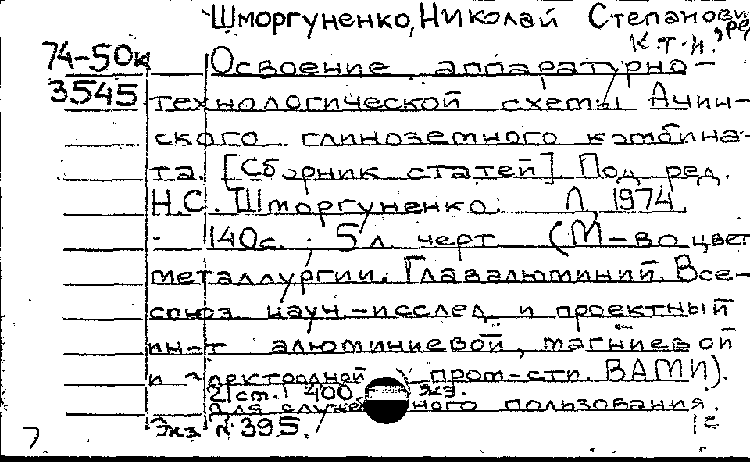 Шморгуненко, Николай Степанович, ред.
к.т.н.
74-50к Освоение аппаратурно-
3545 технологической схемы Ачин-
ского глиноземного комбина-
та. [Сборник статей] Под ред.
Н.С. Шморгуненко. Л 1974.
140с.; 5 л. черт (М-во цвет
металлургии. Главалюминий. Все-
союз науч.-исслед. и проектный
ин-т алюминиевой, магниевой
и электродной пром-сти. ВАМИ).
21 ст. 400 экз.
Для служебного пользования.
Экз. №395.